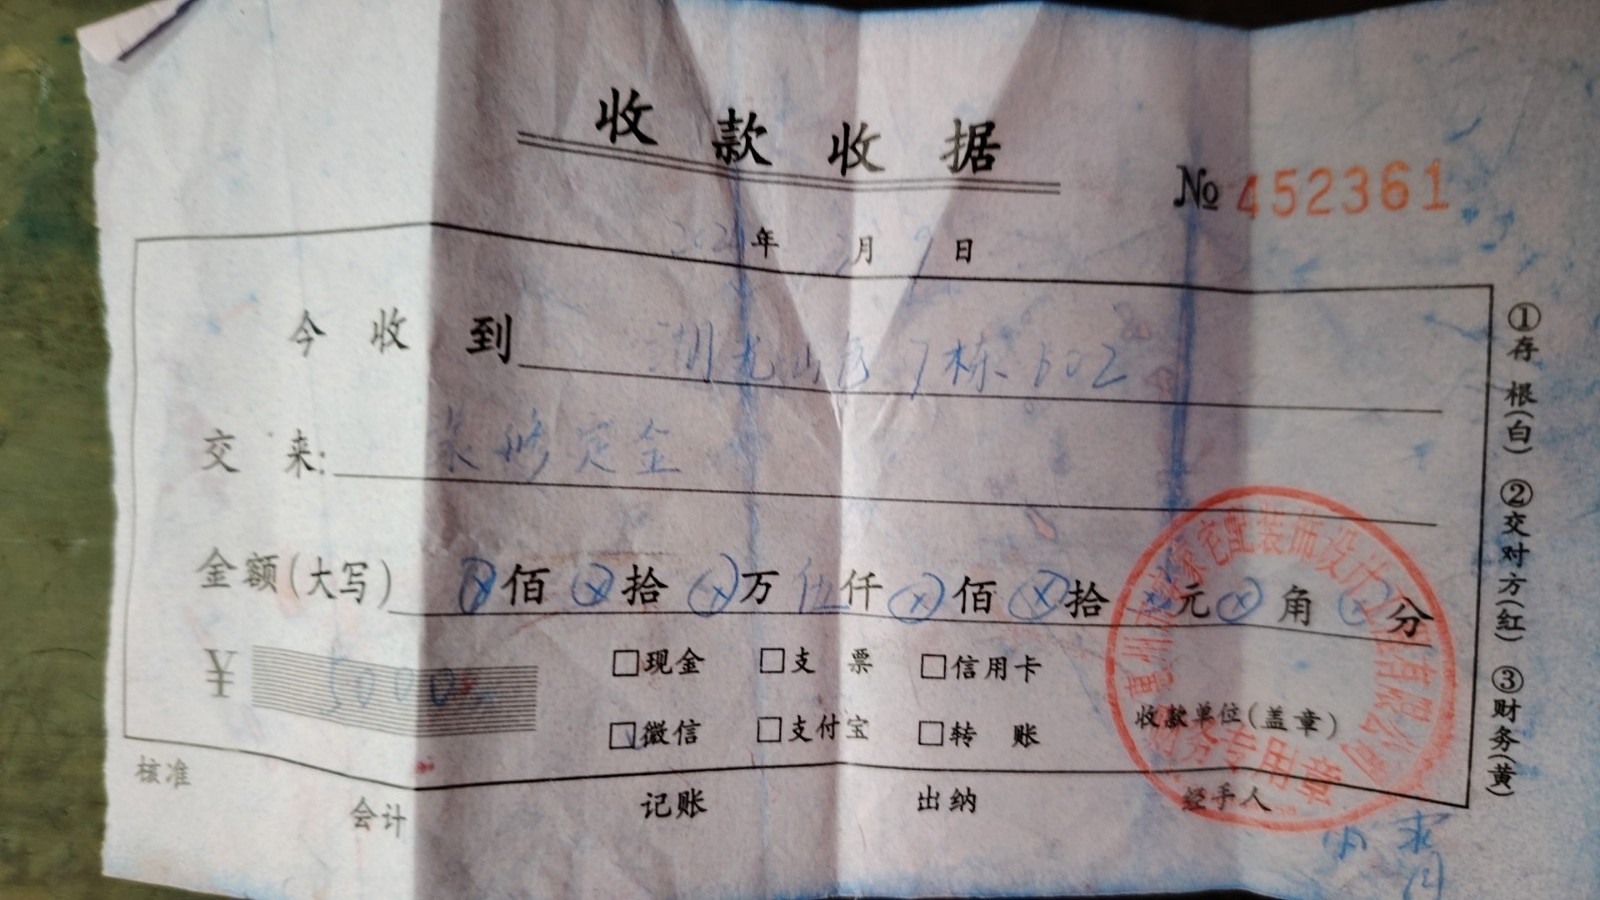 收款收据
№ 452361
年 月 9日
今收到 湖光山色7栋502
交来: 装修定金
金额(大写) ⊗佰⊗拾⊗万伍仟⊗佰⊗拾⊗元⊗角⊗分
¥ 5000
□现金 □支票 □信用卡
□微信 □支付宝 □转账
收款单位(盖章)
家宅配装饰设计 有限公司
财务专用章
核准 会计 记账 出纳 经手人
①存根(白) ②交对方(红) ③财务(黄)